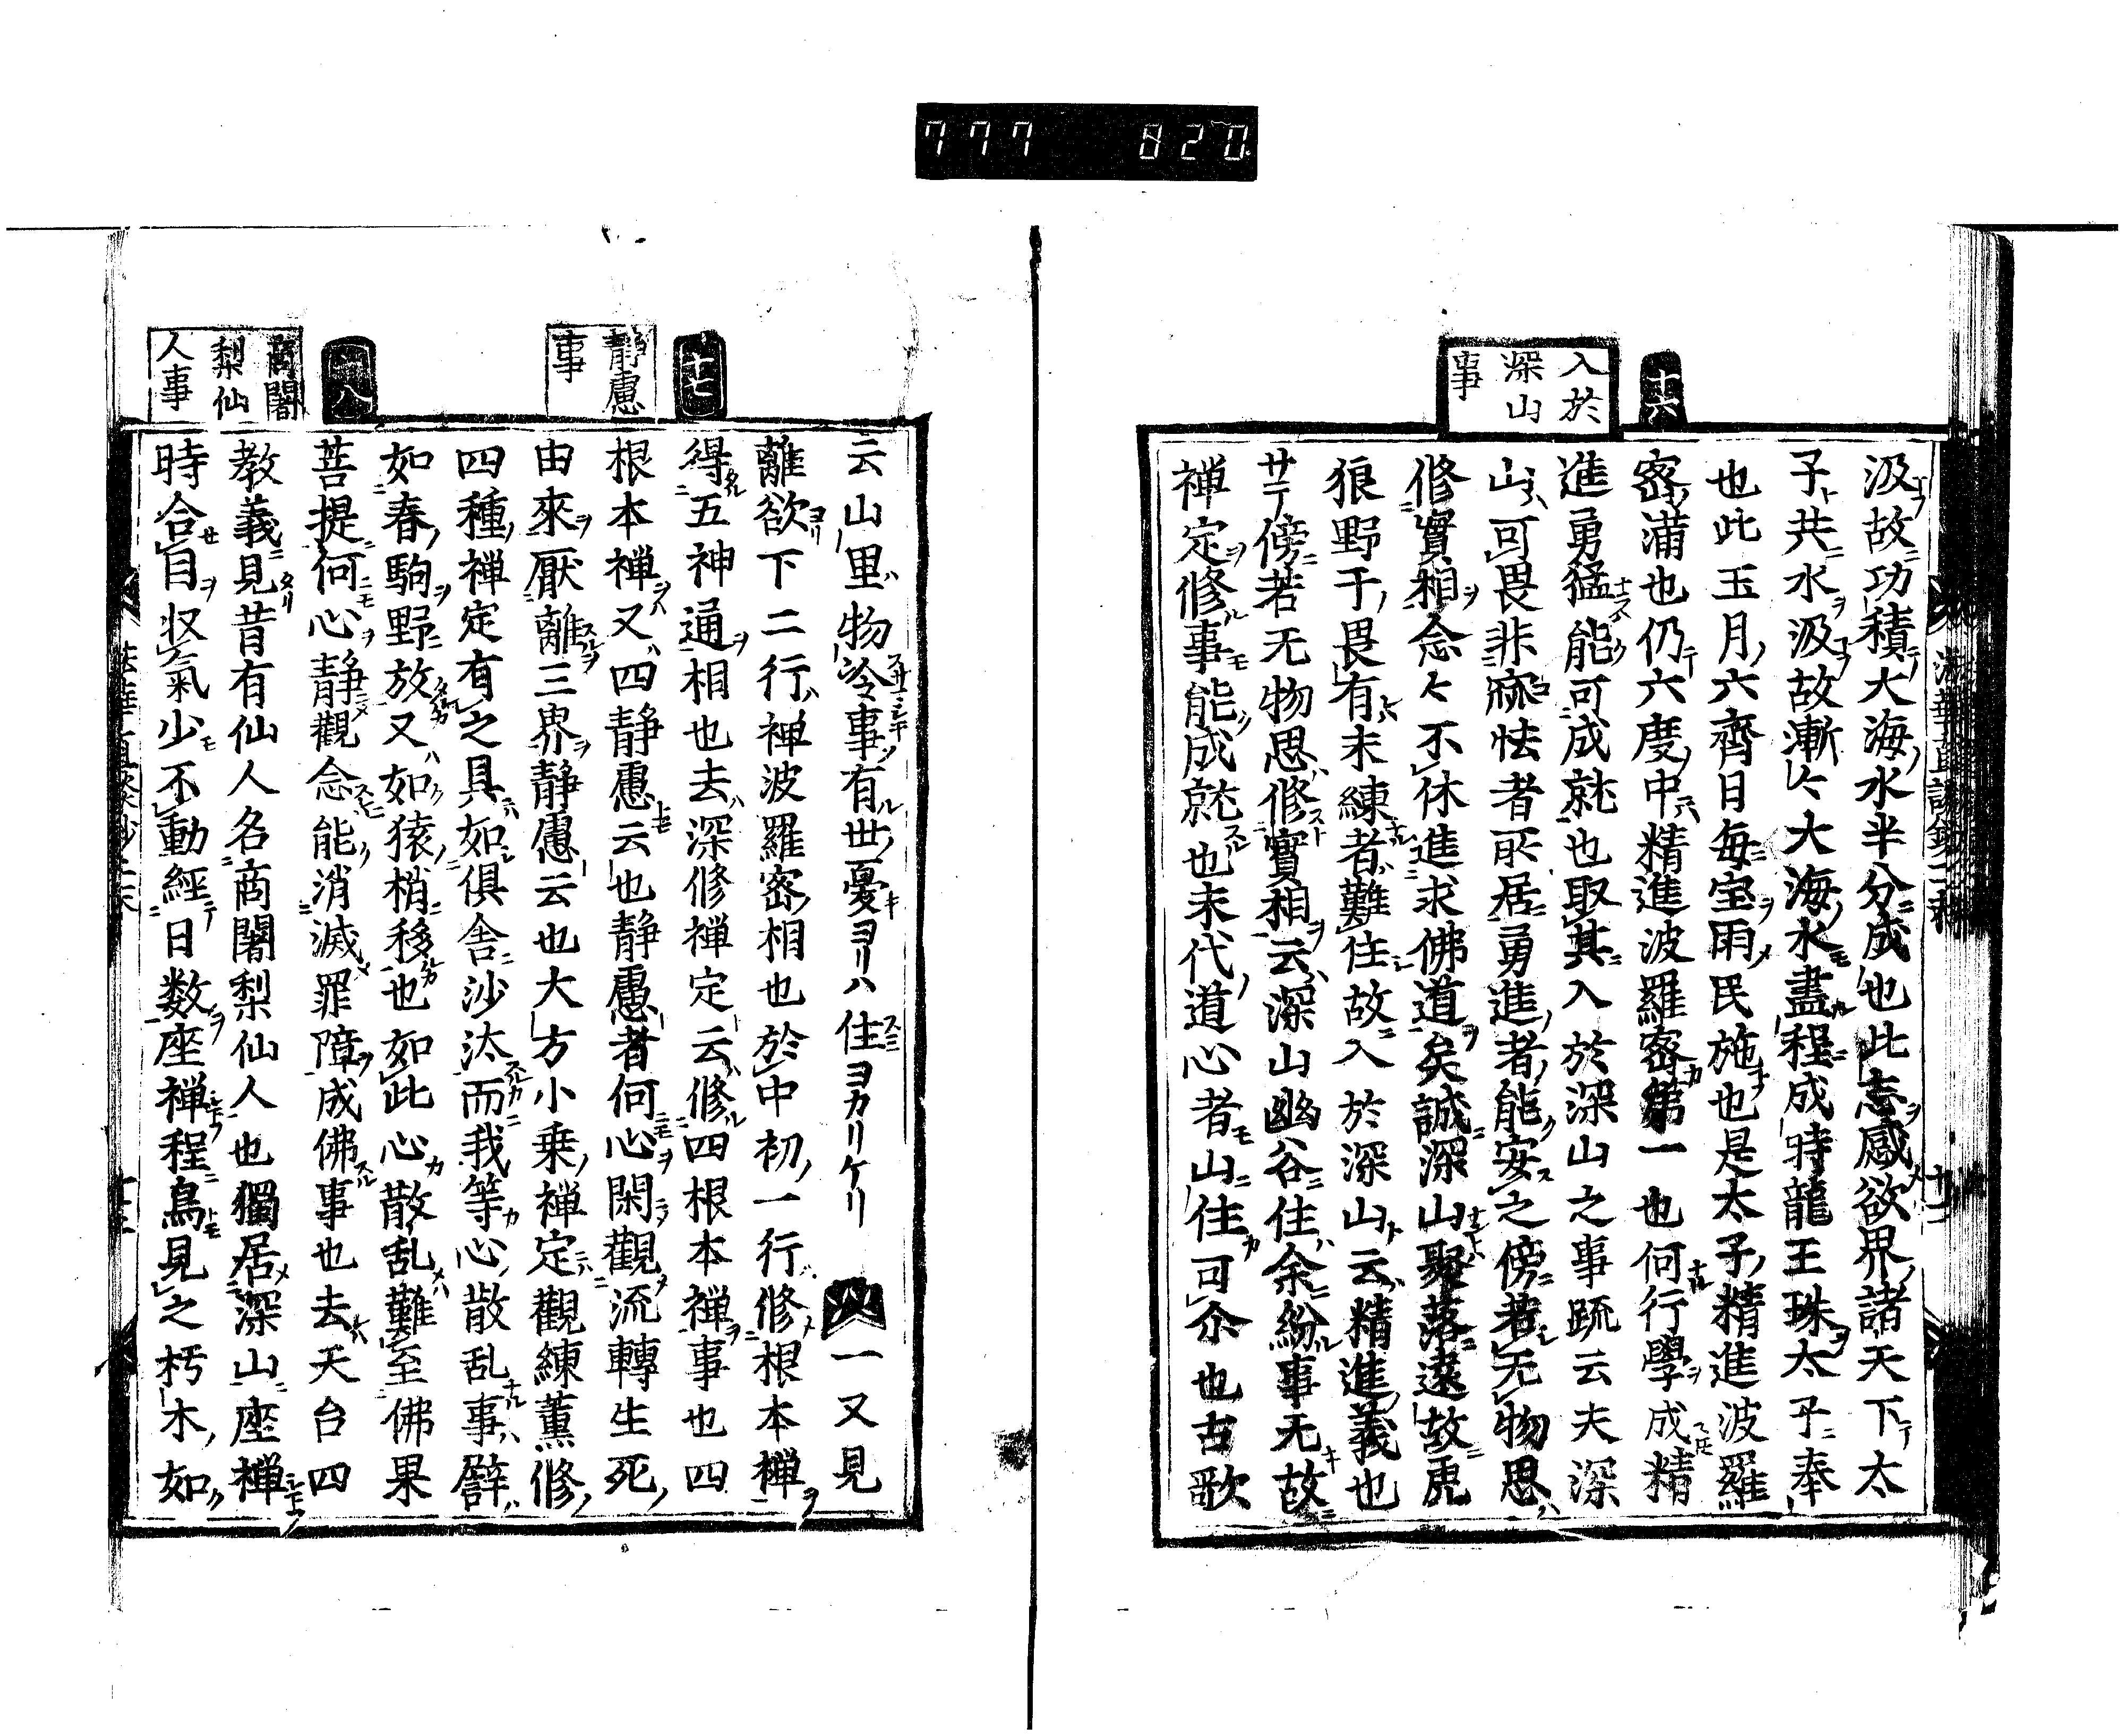 777 820
十六
入於
深山
事
汲故功積大海水半分成也此志感欲界諸天下太
子共水汲故漸々大海水盡程成時龍王珠太子奉
也此玉月六齊日毎宝雨民施也是太子精進波羅
密滿也仍六度中精進波羅密第一也何行學成精
進勇猛能可成就也取其入於深山之事疏云夫深
山可畏非㾀怯者所居勇進者能安之傍若无物思
修實相念々不休進求佛道矣誠深山聚落遠故虎
狼野干畏有未練者難住故入於深山云精進義也
サテ傍若无物思修實相云深山幽谷住余紛事无故
禅定修事能成就也末代道心者山住可尒也古歌
十七
静慮
事
十八
商闍
梨仙
人事
云山里物冷事有世憂ヨリハ住ヨカリケリ 一又見
離欲下二行禅波羅密相也於中初一行修根本禅
得五神通相也去深修禅定云修四根本禅事也四
根本禅又四静慮云也静慮者何心閑觀流轉生死
由來厭離三界静慮云也大方小乗禅定觀練薫修
四種禅定有之具如俱舎沙汰而我等心散乱事譬
如春駒野放又如猿梢移也如此心散乱難至佛果
菩提何心静觀念能消滅罪障成佛事也去天台四
教義見昔有仙人名商闍梨仙人也獨居深山座禅
時合目収氣少不動經日数座禅程鳥見之朽木如